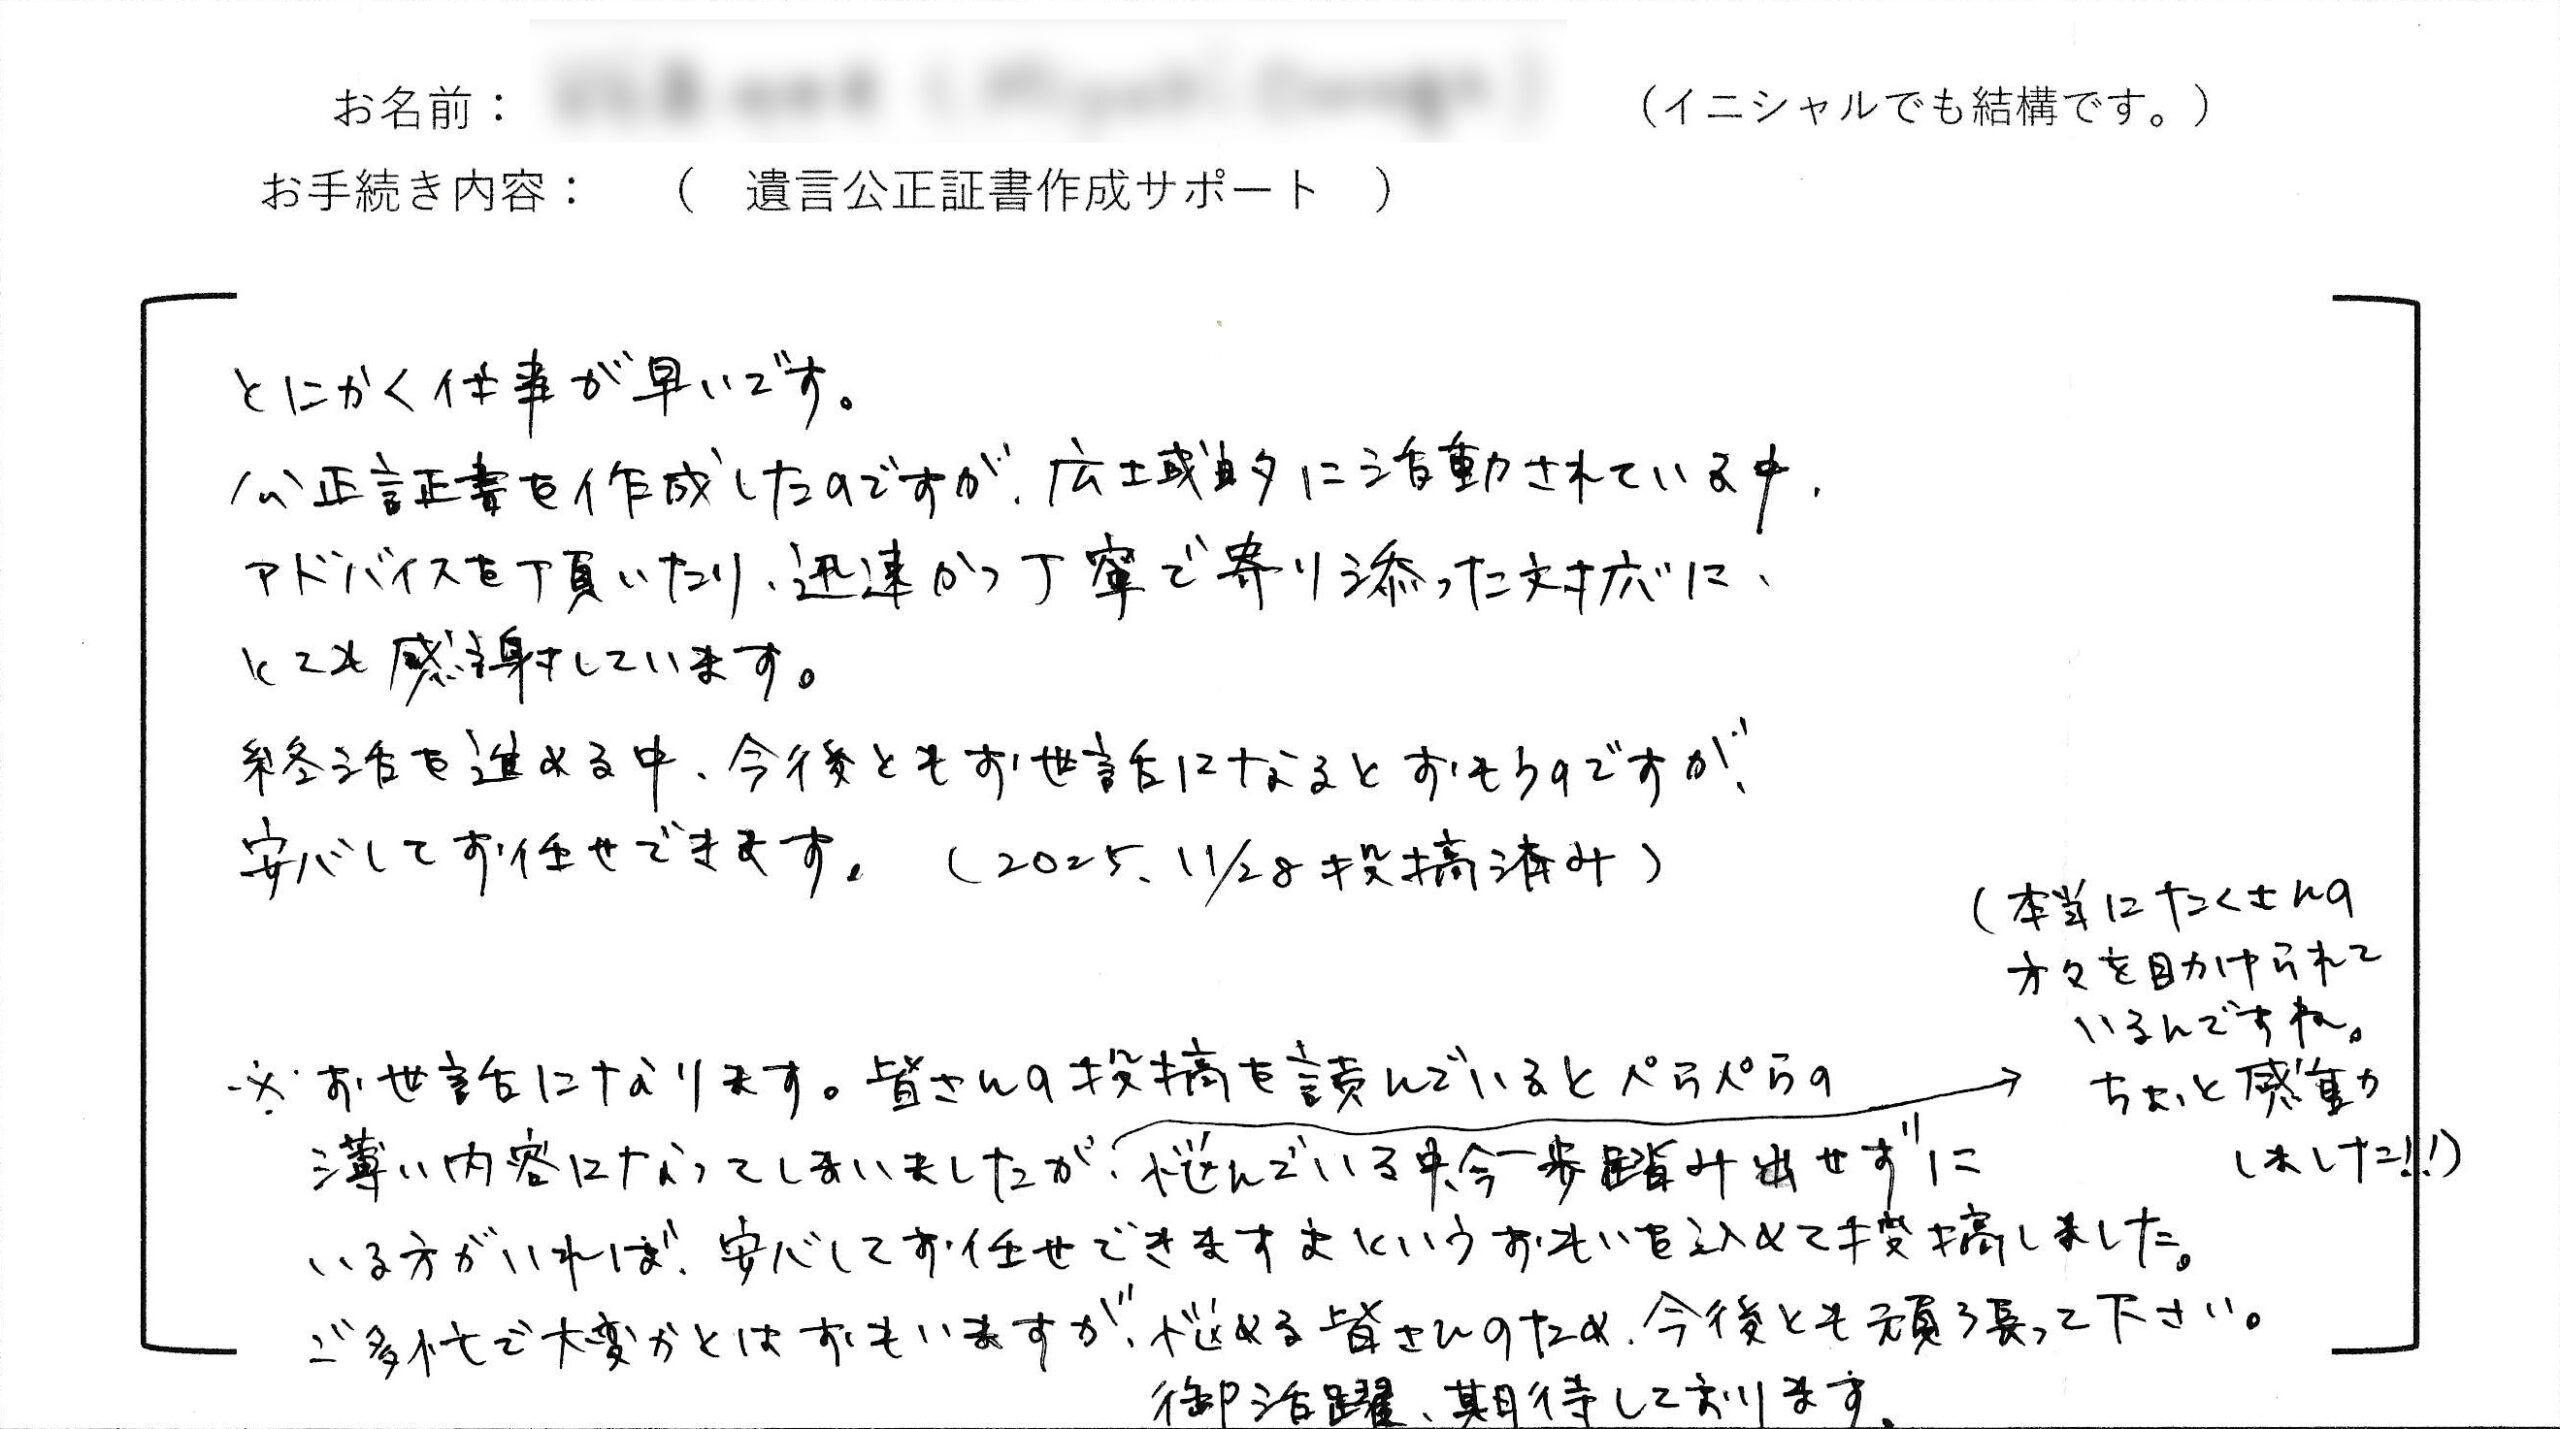 お名前：
（イニシャルでも結構です。）
お手続き内容：　（　遺言公正証書作成サポート　）
とにかく仕事が早いです。
公正証書を作成したのですが、広域的に活動されている中、
アドバイスを頂いたり、迅速かつ丁寧で寄り添った対応に、
とても感謝しています。
終活を進める中、今後ともお世話になるとおもうのですが、
安心してお任せできます。（2025、11/28投稿済み）
※お世話になります。皆さんの投稿を読んでいるとペらペらの
薄い内容になってしまいましたが、悩んでいる中、今一歩踏み出せずに
いる方がいれば、安心してお任せできますよというおもいを込めて投稿しました。
ご多忙で大変かとはおもいますが、悩める皆さんのため、今後とも頑張って下さい。
御活躍、期待しております。
（本当にたくさんの
方々を目かけられて
いるんですね。
ちょっと感動
しました!!）